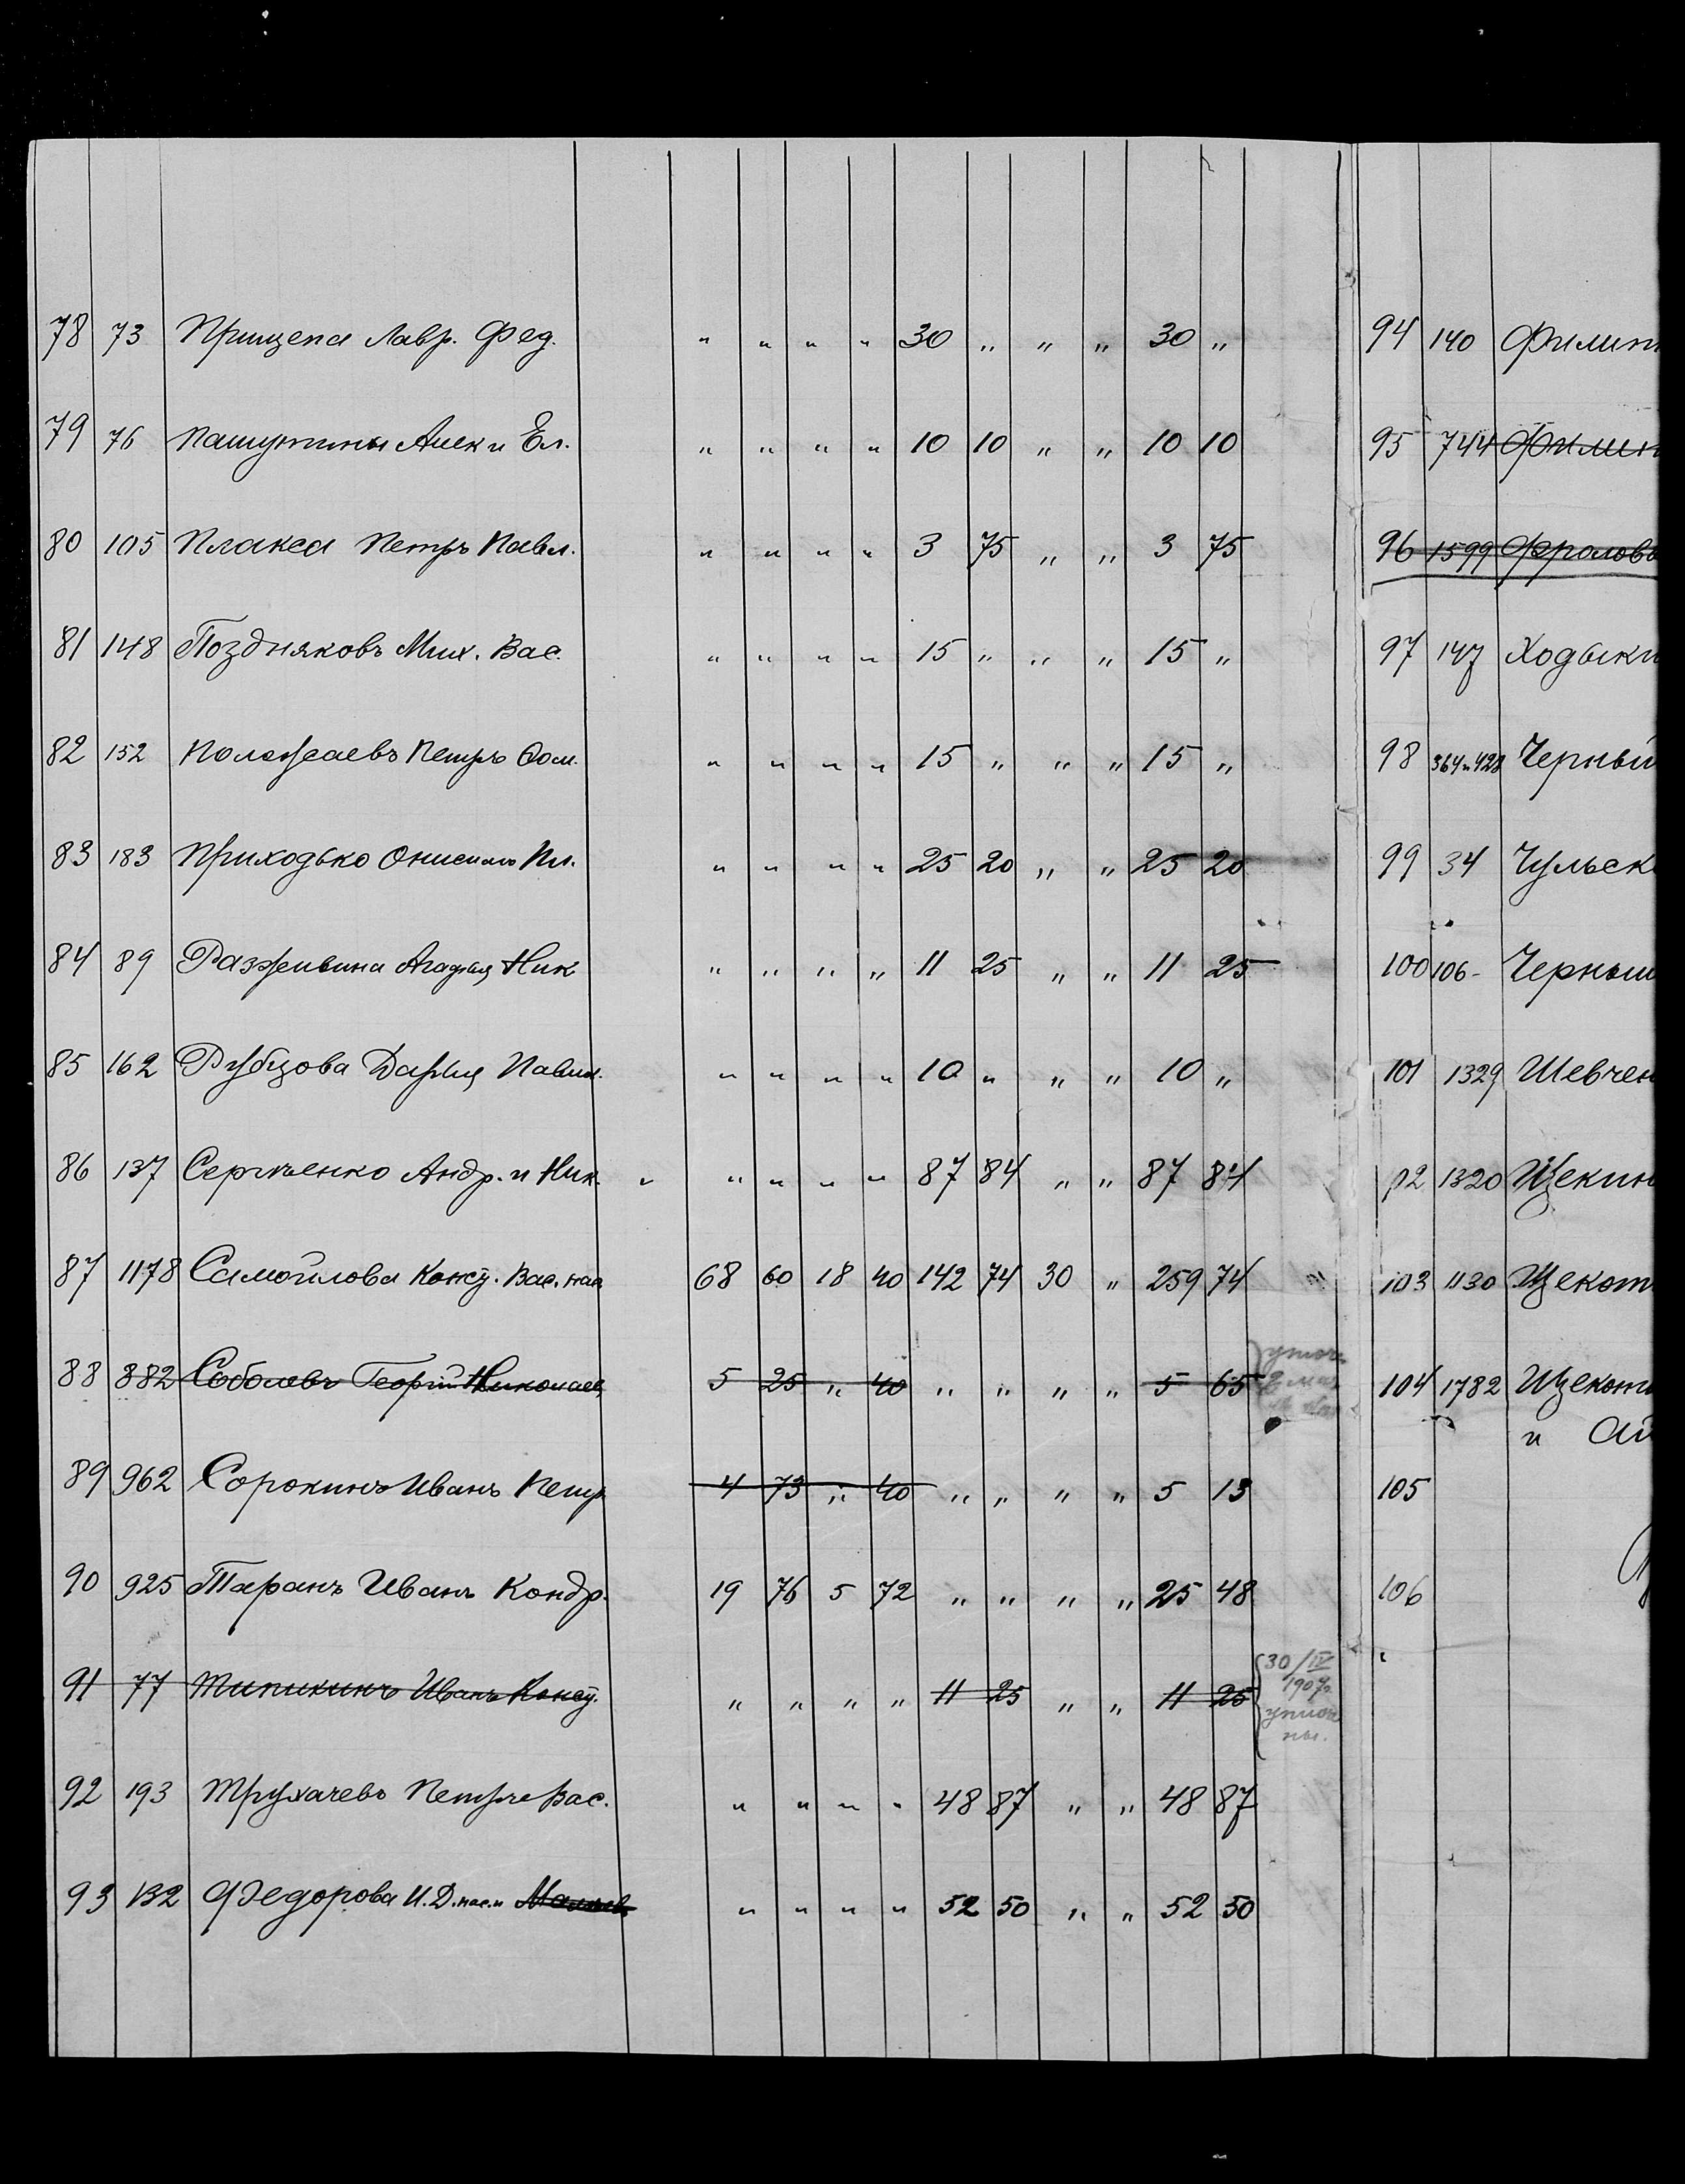 78 73 Прищепа Лавр. Фед. " " " " 30 " " " 30 "
79 76 Пашутины Алек и Ел. " " " " 10 10 " " 10 10
80 105 Плакса Петръ Павл. " " " " 3 75 " " 3 75
81 148 Поздняковъ Мих. Вас. " " " " 15 " " " 15 "
82 152 Полежаевъ Петръ Ѳом. " " " " 15 " " " 15 "
83 183 Приходько Онисимъ Пл. " " " " 25 20 " " 25 20
84 89 Разживина Агафья Ник " " " " 11 25 " " 11 25
85 162 Рубцова Дарья Павл. " " " " 10 " " " 10 "
86 137 Сергѣенко Андр. и Ник. " " " " 87 84 " " 87 84
87 1178 Самойлова Конст. Вас. нас 68 60 18 40 142 74 30 " 259 74 "
88 882 Соболевъ Георгій Николаев 5 25 " 40 " " " " 5 65
89 962 Сорокинъ Иванъ Петр 4 73 " 40 " " " " 5 13
90 925 Таранъ Иванъ Кондр. 19 76 5 72 " " " " 25 48
91 77 Типикинъ Иванъ Конст. " " " " 11 25 " " 11 25
30/IV
1907г
92 193 Трухачевъ Петръ Вас. " " " " 48 87 " " 48 87
93 132 Федорова И. Д. нас. и " " " " 52 50 " " 52 50
94 140 Филип
95 744 Филип
96 1599 Фроловъ
97 147 Ходыки
98 364 и 428 Черный
99 34 Чульск
100 106 - Черныш
101 1329 Шевчен
02 1320 Щекин
103 1130 Щекот
104 1782 Щекот
и
105
106